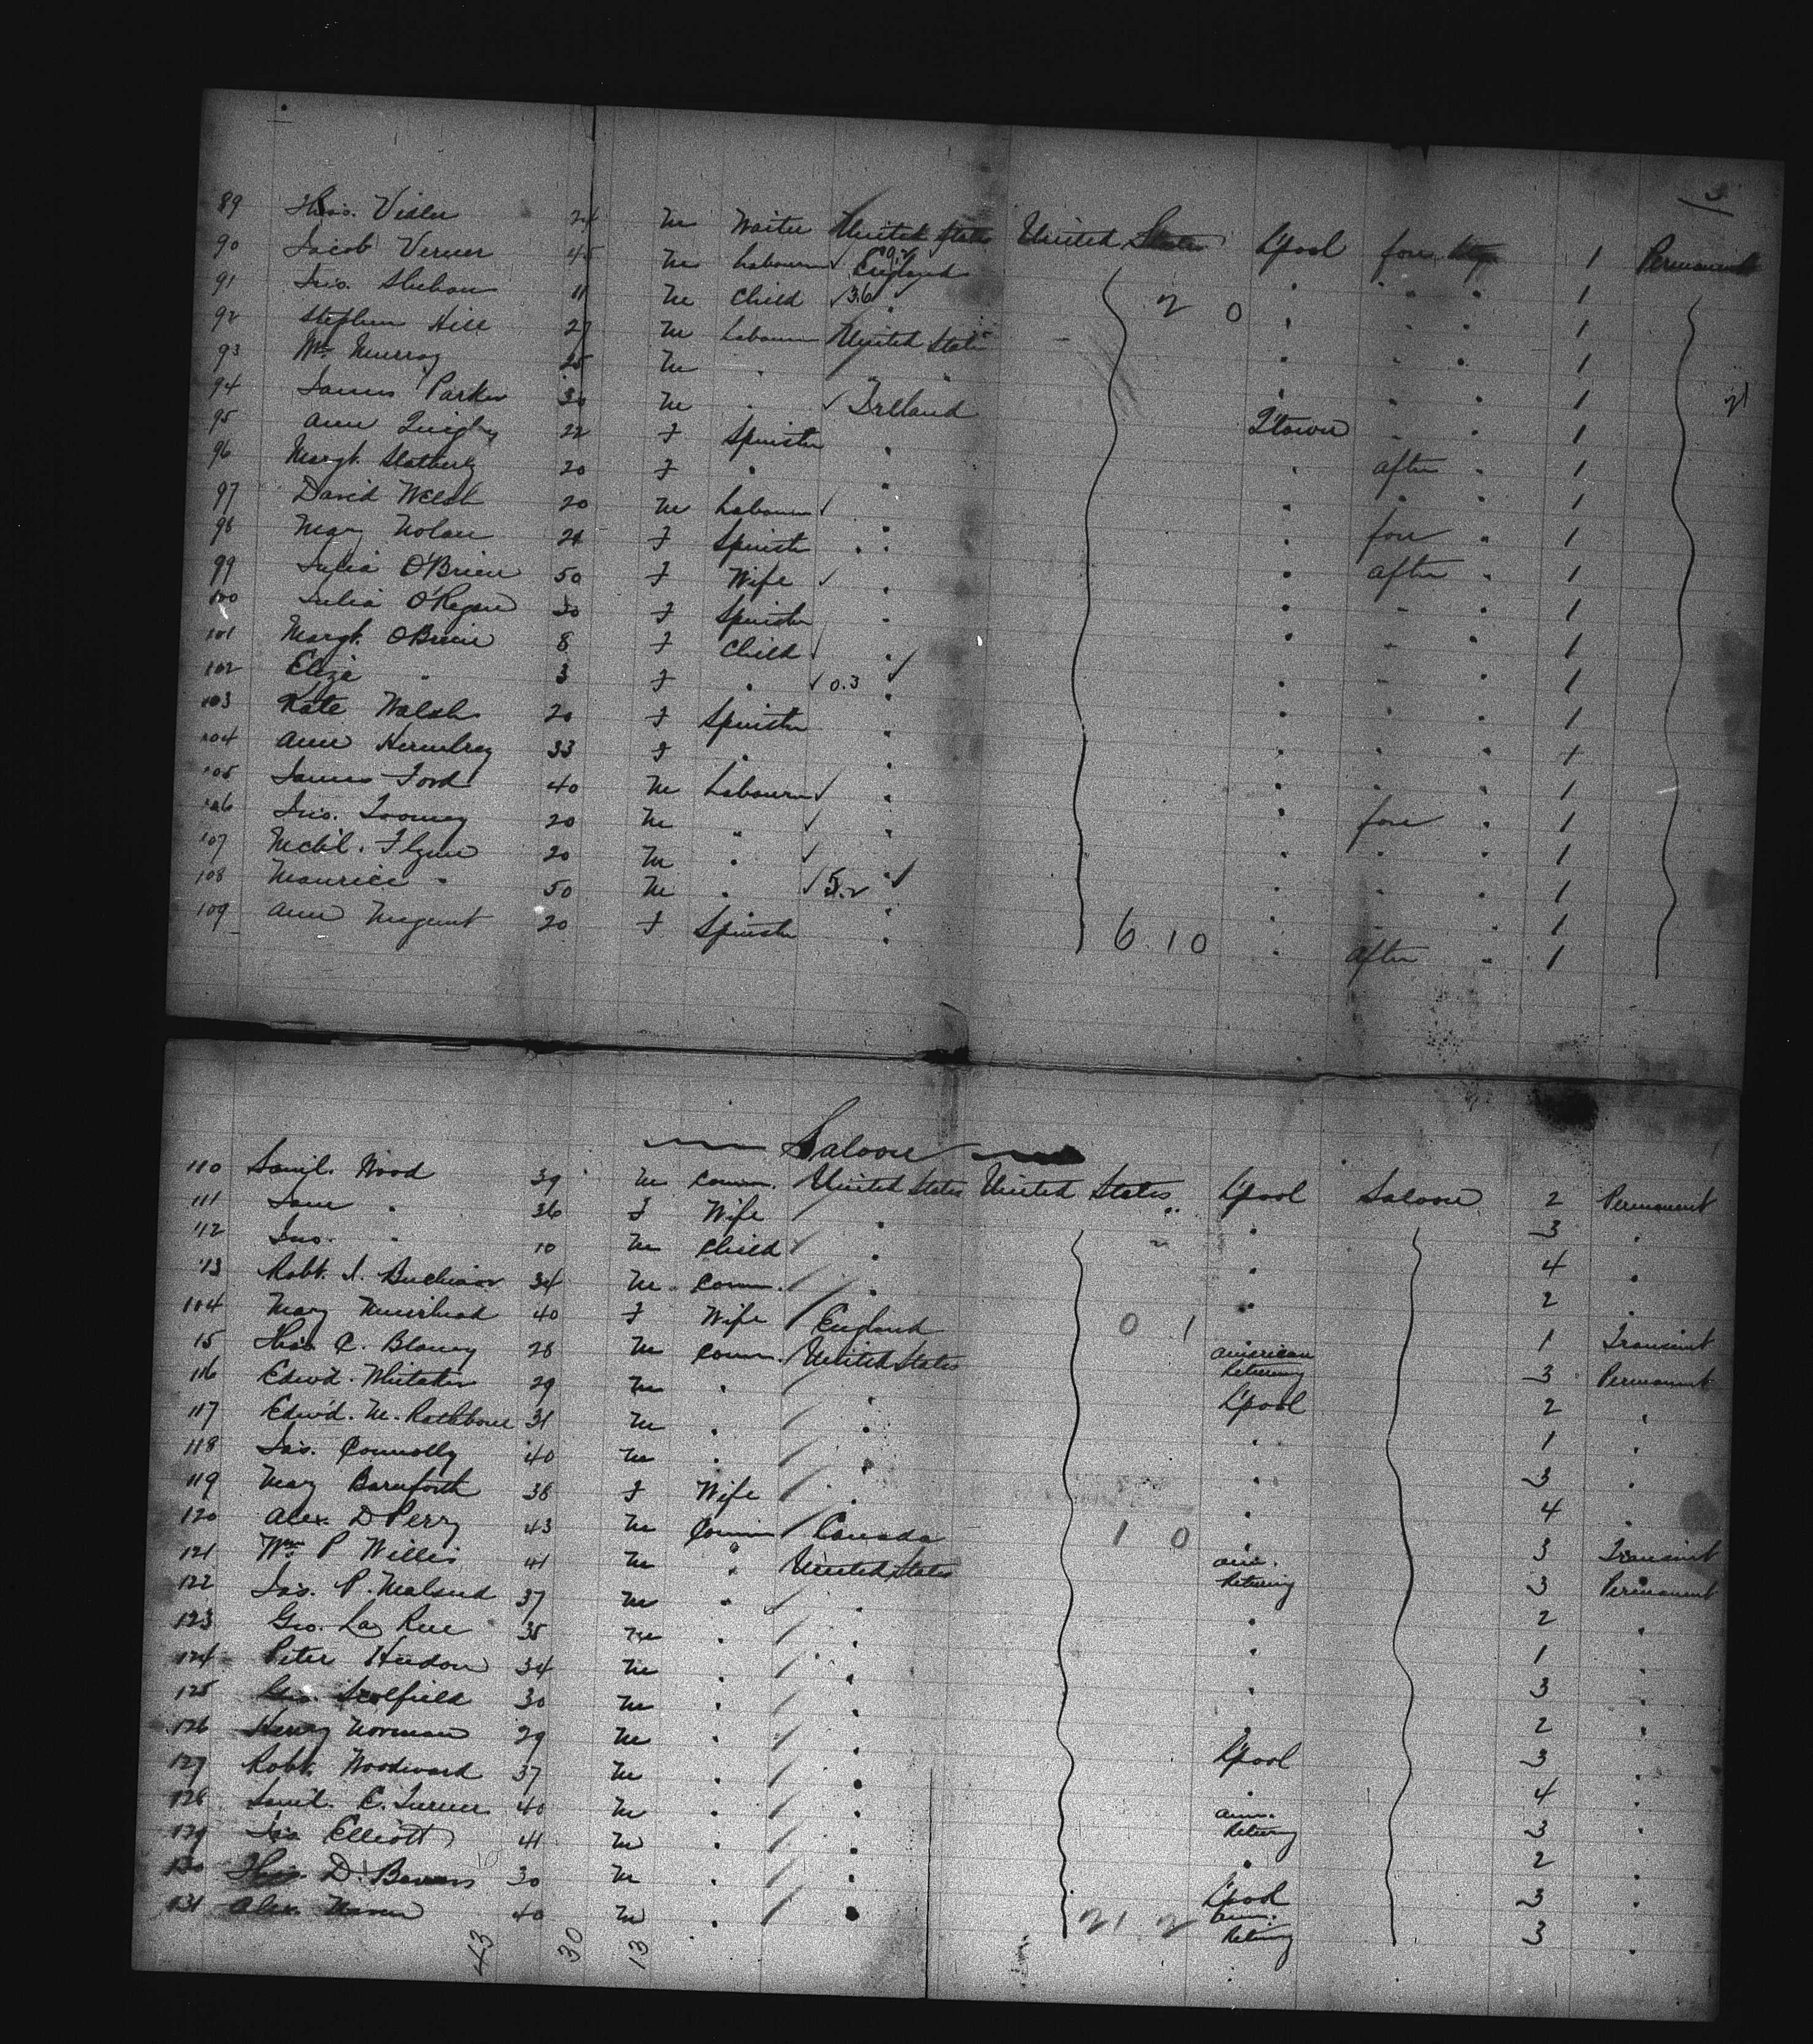 3
89 Thos. Vidler 24 M Waiter United States United States L'pool fore 1 Permanent
90 Jacob Verner 45 M Labourer England " " " 1
91 Jno. Shehan 11 M Child 3.6 " 2 0 " " " 1
92 Stephen Hill 27 M Labourer United States " " " 1
93 Wm. Murray 25 M " " " " " 1
94 James Parker 30 M " Ireland " " " 1
95 Ann Quigley 22 F Spinster " Q'town " " 1
96 Margt. Slattery 20 F " " " after " 1
97 David Welsh 20 M Labourer " " " " 1
98 Mary Nolan 21 F Spinster " " fore " 1
99 Julia O'Brien 50 F Wife " " after " 1
100 Julia O'Regan 30 F Spinster " " " 1
101 Margt. O'Brien 8 F Child " " " " 1
102 Eliza " 3 F " 0.3 " " " " 1
103 Kate Walsh 20 F Spinster " " " " 1
104 Ann 33 F " " " " " 1
105 James Ford 40 M Labourer " " " " 1
106 Jno. Toomey 20 M " " " fore " 1
107 Michl. Flynn 20 M " " " " " 1
108 Maurice " 50 M " 5.2 " " " " 1
109 Ann 20 F Spinster " 6 10 " after " 1
Saloon
110 Saml. Wood 39 M Comm. United States United States L'pool Saloon 2 Permanent
111 Jane " 36 F Wife " " 3 "
112 Jno. " 10 M Child " " 4 "
13 Robt. J. 34 M Comm. " " 2 "
104 Mary Muirhead 40 F Wife England 0 1 1 Transient
15 Thos C. Blaney 28 M Comm. United States American Returning 3 Permanent
116 Edwd. Whitaker 29 M " " L'pool 2 "
117 Edwd. M. Rathbone 31 M " " " 1 "
118 Jas. Connolly 40 M " " " 3 "
119 Mary Bamforth 38 F Wife " " 4 "
120 Alex. D Perry 43 M Comm Canada 1 0 " 3 Transient
121 Wm. P Willis 41 M " United States Am. Returning 3 Permanent
122 Jas. P. 37 M " " " 2 "
123 Geo. La Rue 35 M " " " 1 "
124 Peter 34 M " " " 3 "
125 Scolfield 30 M " " " 2 "
126 Henry Norman 29 M " " L'pool 3 "
127 Robt. Woodward 37 M " " " 4 "
128 Saml. C. Turner 40 M " " Am. Returning 3 "
129 Jas Elliott 41 M " " " 2 "
130 Thos. D. 30 M " " L'pool 3 "
131 Alex. 40 M " " 21 2 Am. Returning 3 "
43 30 13